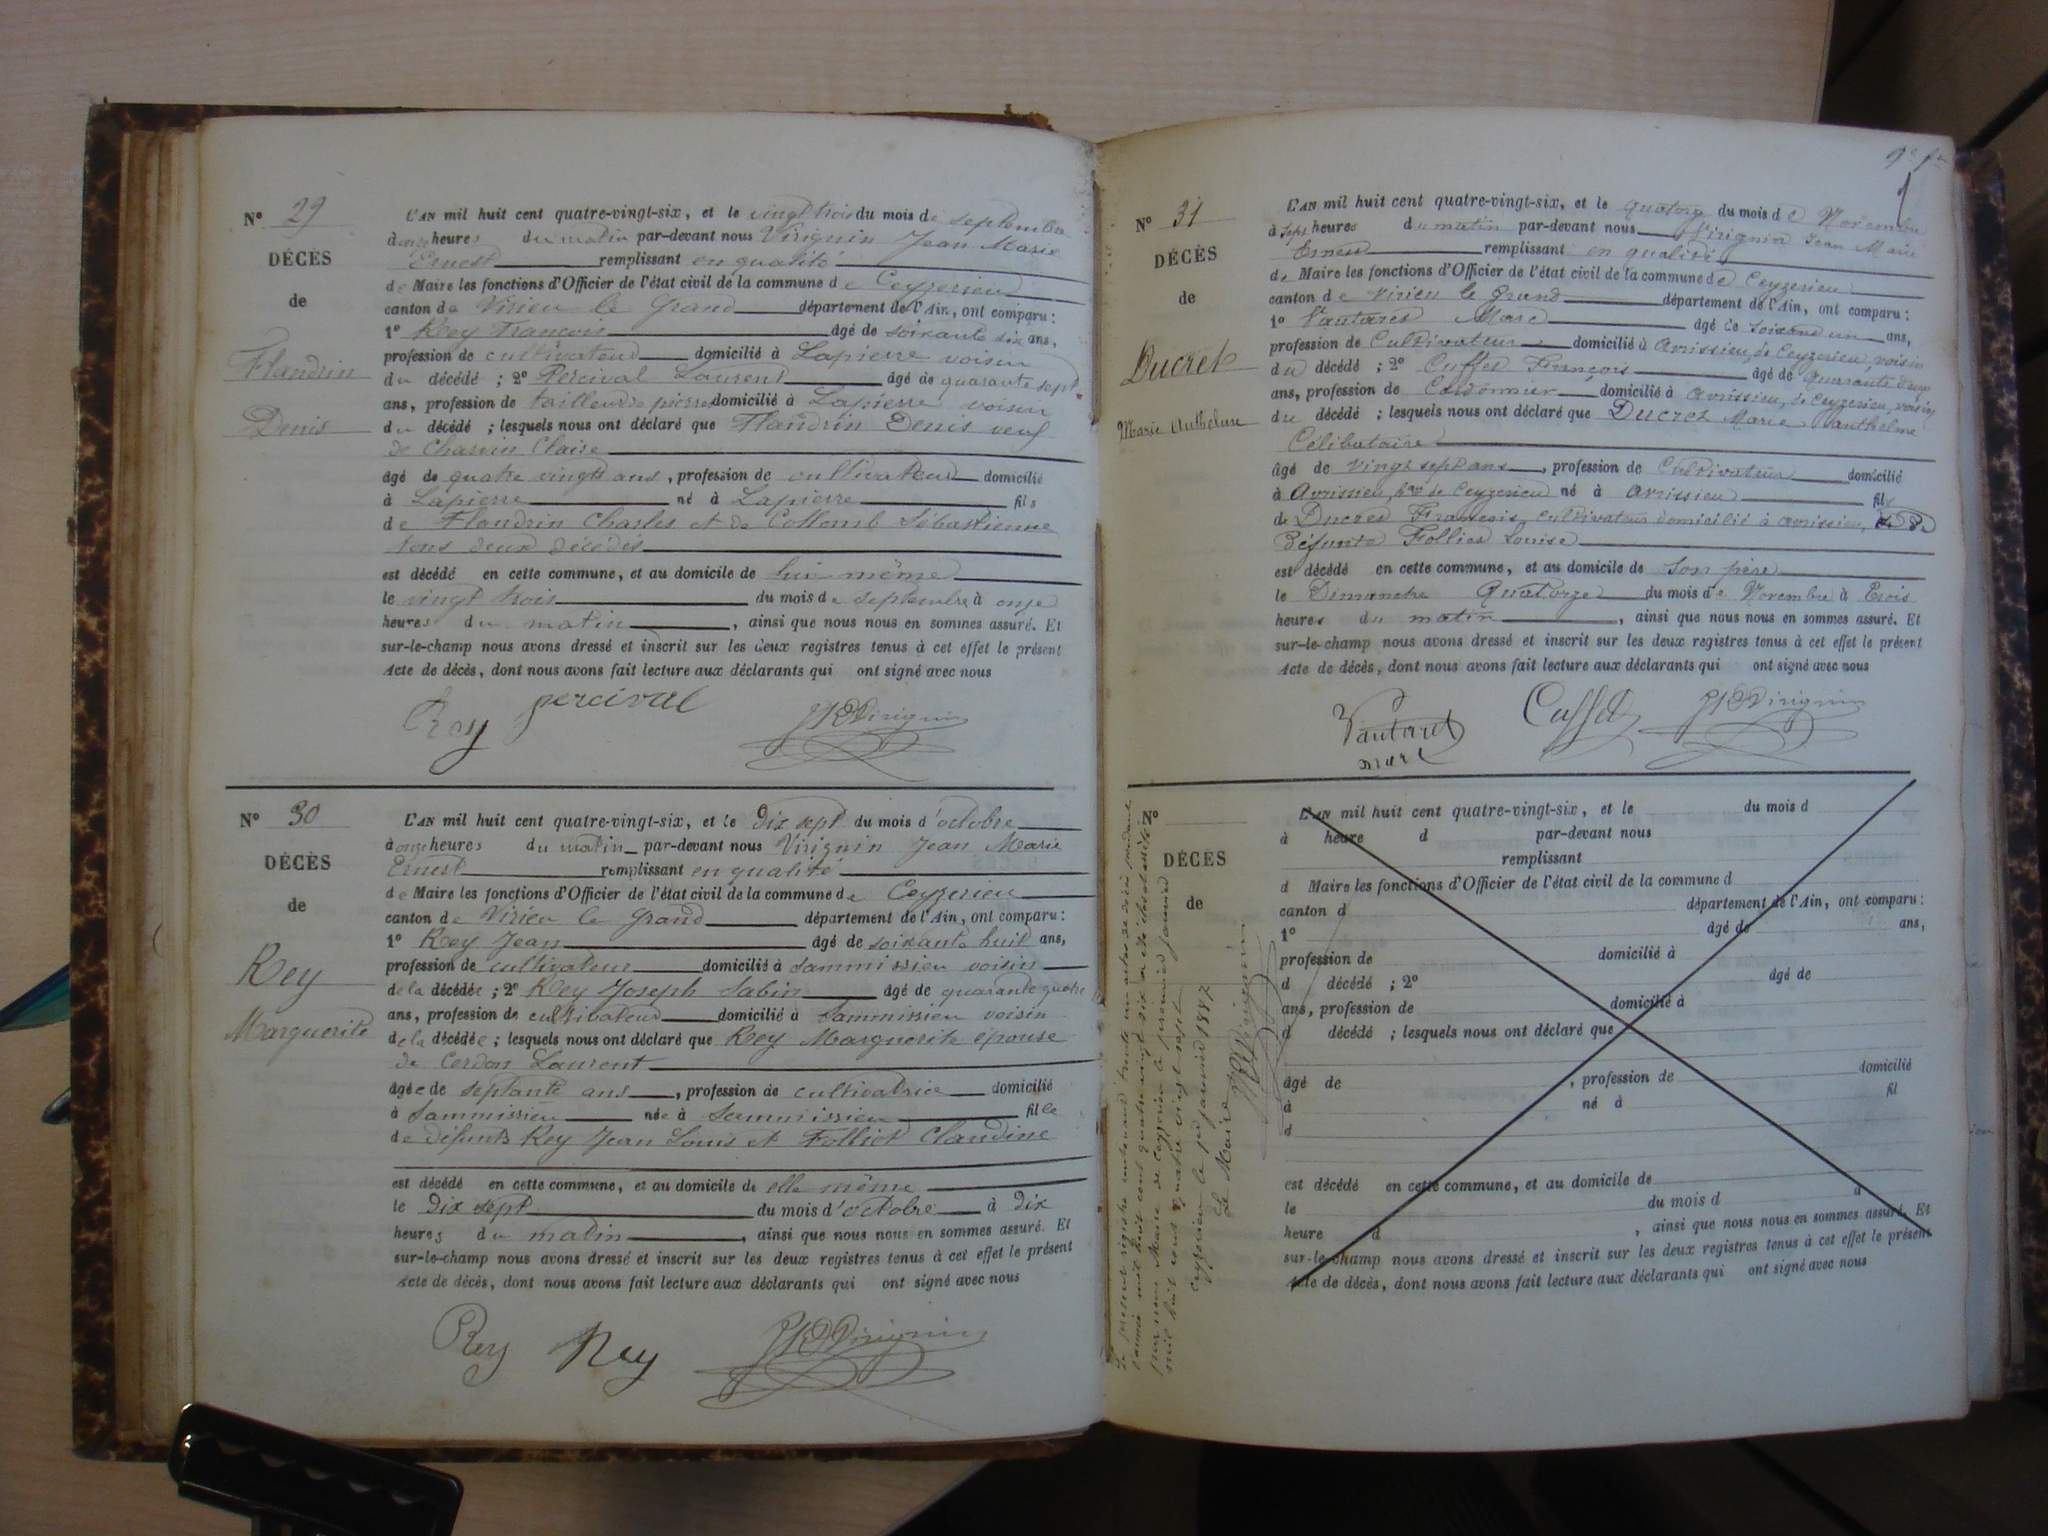 N° 29
DÉCÈS
de
Flandrin
Denis
L'AN mil huit cent quatre-vingt-six, et le vingt trois du mois de septembre
à onze heures du matin par-devant nous Virignin Jean Marie
Ernest remplissant en qualité
de Maire les fonctions d'Officier de l'état civil de la commune de Ceyzerieu
canton de Virieu le Grand département de l'Ain, ont comparu :
1° Rey François âgé de soixante six ans,
profession de cultivateur domicilié à Lapierre voisin
du décédé ; 2° Percival Laurent âgé de quarante sept
ans, profession de tailleur de pierres domicilié à Lapierre voisin
du décédé ; lesquels nous ont déclaré que Flandrin Denis veuf
de Charvin Claire
âgé de quatre vingts ans, profession de cultivateur domicilié
à Lapierre né à Lapierre fils
de Flandrin Charles et de Collomb Sébastienne
tous deux décédés
est décédé en cette commune, et au domicile de lui même
le vingt trois du mois de septembre à onze
heures du matin, ainsi que nous nous en sommes assuré. Et
sur-le-champ nous avons dressé et inscrit sur les deux registres tenus à cet effet le présent
Acte de décès, dont nous avons fait lecture aux déclarants qui ont signé avec nous
Rey percival JMEVirignin
N° 30
DÉCÈS
de
Rey
Marguerite
L'AN mil huit cent quatre-vingt-six, et le dix sept du mois d'octobre
à onze heures du matin par-devant nous Virignin Jean Marie
Ernest remplissant en qualité
de Maire les fonctions d'Officier de l'état civil de la commune de Ceyzerieu
canton de Virieu le Grand département de l'Ain, ont comparu :
1° Rey Jean âgé de soixante huit ans,
profession de cultivateur domicilié à Sammissieu voisin
de la décédée ; 2° Rey Joseph Sabin âgé de quarante quatre
ans, profession de cultivateur domicilié à Sammissieu voisin
de la décédée ; lesquels nous ont déclaré que Rey Marguerite épouse
de Cerdon Laurent
âgée de septante ans, profession de cultivatrice domicilié
à Sammissieu née à Sammissieu fille
de défunts Rey Jean Louis et Folliet Claudine
est décédé en cette commune, et au domicile de elle même
le Dix sept du mois d'octobre à dix
heures du matin, ainsi que nous nous en sommes assuré. Et
sur-le-champ nous avons dressé et inscrit sur les deux registres tenus à cet effet le présent
Acte de décès, dont nous avons fait lecture aux déclarants qui ont signé avec nous
Rey Rey JMEVirignin
N° 31
DÉCÈS
de
Ducret
Marie Anthelme
L'AN mil huit cent quatre-vingt-six, et le quatorze du mois de Novembre
à sept heures du matin par-devant nous Virignin Jean Marie
Ernest remplissant en qualité
de Maire les fonctions d'Officier de l'état civil de la commune de Ceyzerieu
canton de Virieu le Grand département de l'Ain, ont comparu :
1° Vautaret Marc âgé de soixante un ans,
profession de Cultivateur domicilié à Avrissieu, de Ceyzerieu, voisin
du décédé ; 2° Cuffet François âgé de quarante deux
ans, profession de Cordonnier domicilié à Avrissieu, de Ceyzerieu, voisin
du décédé ; lesquels nous ont déclaré que Ducret Marie Anthelme
Célibataire
âgé de vingt sept ans, profession de Cultivateur domicilié
à Avrissieu, de Ceyzerieu né à Avrissieu fils
de Ducret François, cultivateur domicilié à Avrissieu, et de
Défunte Folliet Louise
est décédé en cette commune, et au domicile de son père
le Dimanche Quatorze du mois de Novembre à Trois
heures du matin, ainsi que nous nous en sommes assuré. Et
sur-le-champ nous avons dressé et inscrit sur les deux registres tenus à cet effet le présent
Acte de décès, dont nous avons fait lecture aux déclarants qui ont signé avec nous
Vautaret Cuffet JMEVirignin
marc
N°
DÉCÈS
de
L'AN mil huit cent quatre-vingt-six, et le du mois d
à heure d par-devant nous
remplissant
d Maire les fonctions d'Officier de l'état civil de la commune d
canton d département de l'Ain, ont comparu :
1° âgé de ans,
profession de domicilié à
d décédé ; 2° âgé de
ans, profession de domicilié à
d décédé ; lesquels nous ont déclaré que
âgé de , profession de domicilié
à né à fil
d
est décédé en cette commune, et au domicile de
le du mois d à
heure d , ainsi que nous nous en sommes assuré. Et
sur-le-champ nous avons dressé et inscrit sur les deux registres tenus à cet effet le présent
Acte de décès, dont nous avons fait lecture aux déclarants qui ont signé avec nous
Le présent registre contenant trente un actes de décès pendant
l'année mil huit cent quatre vingt six a été clos et arrêté
par nous Maire de Ceyzerieu le premier janvier
mil huit cent quatre vingt sept
Ceyzerieu le 1er janvier 1887
Le Maire
JMEVirignin